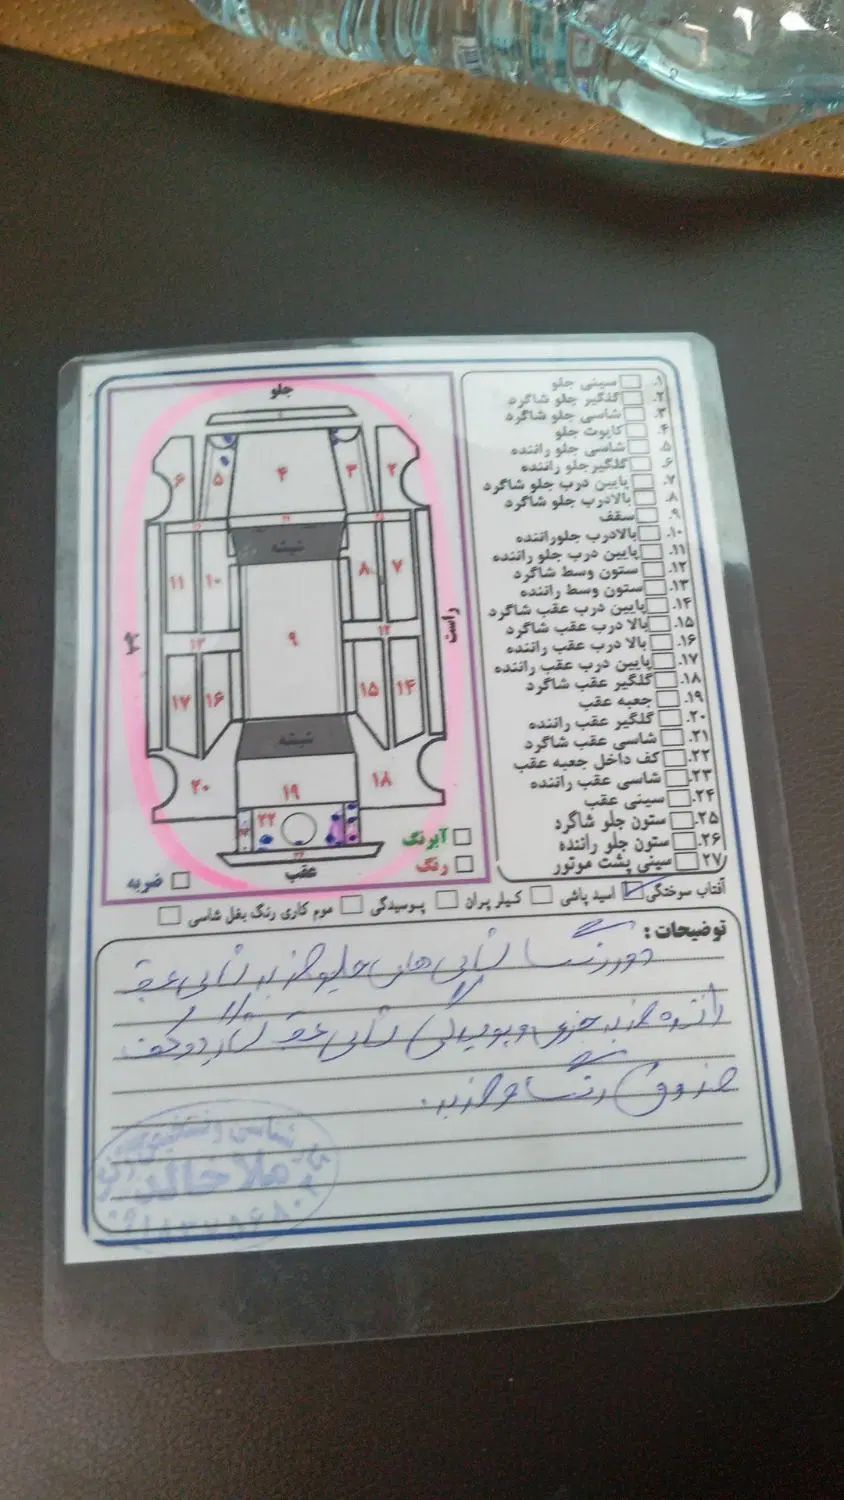 جلو
۱. سینی جلو
۲. گلگیر جلو شاگرد
۳. شاسی جلو شاگرد
۴. کاپوت جلو
۵. شاسی جلو راننده
۶. گلگیر جلو راننده
۷. پایین درب جلو شاگرد
۸. بالادرب جلو شاگرد
۹. سقف
۱۰. بالادرب جلوراننده
۱۱. پایین درب جلو راننده
۱۲. ستون وسط شاگرد
۱۳. ستون وسط راننده
۱۴. پایین درب عقب شاگرد
۱۵. بالا درب عقب شاگرد
۱۶. بالا درب عقب راننده
۱۷. پایین درب عقب راننده
۱۸. گلگیر عقب شاگرد
۱۹. جعبه عقب
۲۰. گلگیر عقب راننده
۲۱. شاسی عقب شاگرد
۲۲. کف داخل جعبه عقب
۲۳. شاسی عقب راننده
۲۴. سینی عقب
۲۵. ستون جلو شاگرد
۲۶. ستون جلو راننده
۲۷. سینی پشت موتور
۲ ۳ ۴ ۵ ۶
شیشه
۷ ۸ ۱۰ ۱۱
راست ۹ چپ
۱۲ ۱۳
۱۴ ۱۵ ۱۶ ۱۷
شیشه
۱۸ ۱۹ ۲۰
۲۲
آبرنگ
رنگ
عقب
ضربه
آفتاب سوختگی اسید پاشی کیلر پران پوسیدگی موم کاری رنگ بغل شاسی
توضیحات :
دور رنگ شاسی های جلو ضربه شاسی عقب
راننده ضربه جزیی و پوسیدگی شاسی عقب شاگرد و کف
صندوق رنگ و ضربه.
ملا خالد